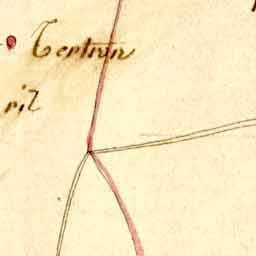 Tertron
ril